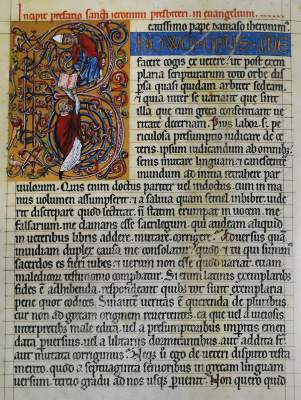 Incipit prefatio sancti ieronimi presbiteri in euangelium
eatissimo pape damaso ieronim'
NOVUM OPUS ME
facere cogis ex uetere, ut post exem
plaria scripturarum toto orbe dis
persa quasi quidam arbiter sedeam,
& quia inter se uariant que sint
illa que cum greca consentiant ue
ritate decernam. Pius labor, s; pe
riculosa presumptio iudicare de ce
teris, ipsum iudicandum ab omnibus
senis mutare linguam, & canescentem
mundum ad initia retrahere par
uulorum. Quis enim doctus pariter uel indoctus, cum in ma
nus uolumen assumpserit, & a saliua quam semel imbibit, uide
rit discrepare quod lectitat, n̄ statim erumpat in uocem, me
falsarium, me clamans esse sacrilegum, qui audeam aliquid
in ueteribus libris addere, mutare, corrigere. Aduersus quā
inuidiam duplex causa me consolatur, quod & tu qui summus
sacerdos es fieri iubes, & uerum non esse quod uariat, etiam
maledicorum testimonio comprobatur. Si enim latinis exemplaribus
fides ē adhibenda, respondeant quibus, tot sunt exemplaria
pene quot codices. Sin autem ueritas ē querenda de pluribus,
cur non ad grecam originem reuertentes, ea que uel a uiciosis
interpretibus male edita, uel a presumptoribus imperitis emen
data peruersius, uel a librariis dormitantibus, aut addita st̄
aut mutata corrigimus. Neq; ū ego de ueteri disputo testa
mento, quod a septuaginta senioribus in grecam linguam
uersum, tercio gradu ad nos usq; peruenit. Non quero quid